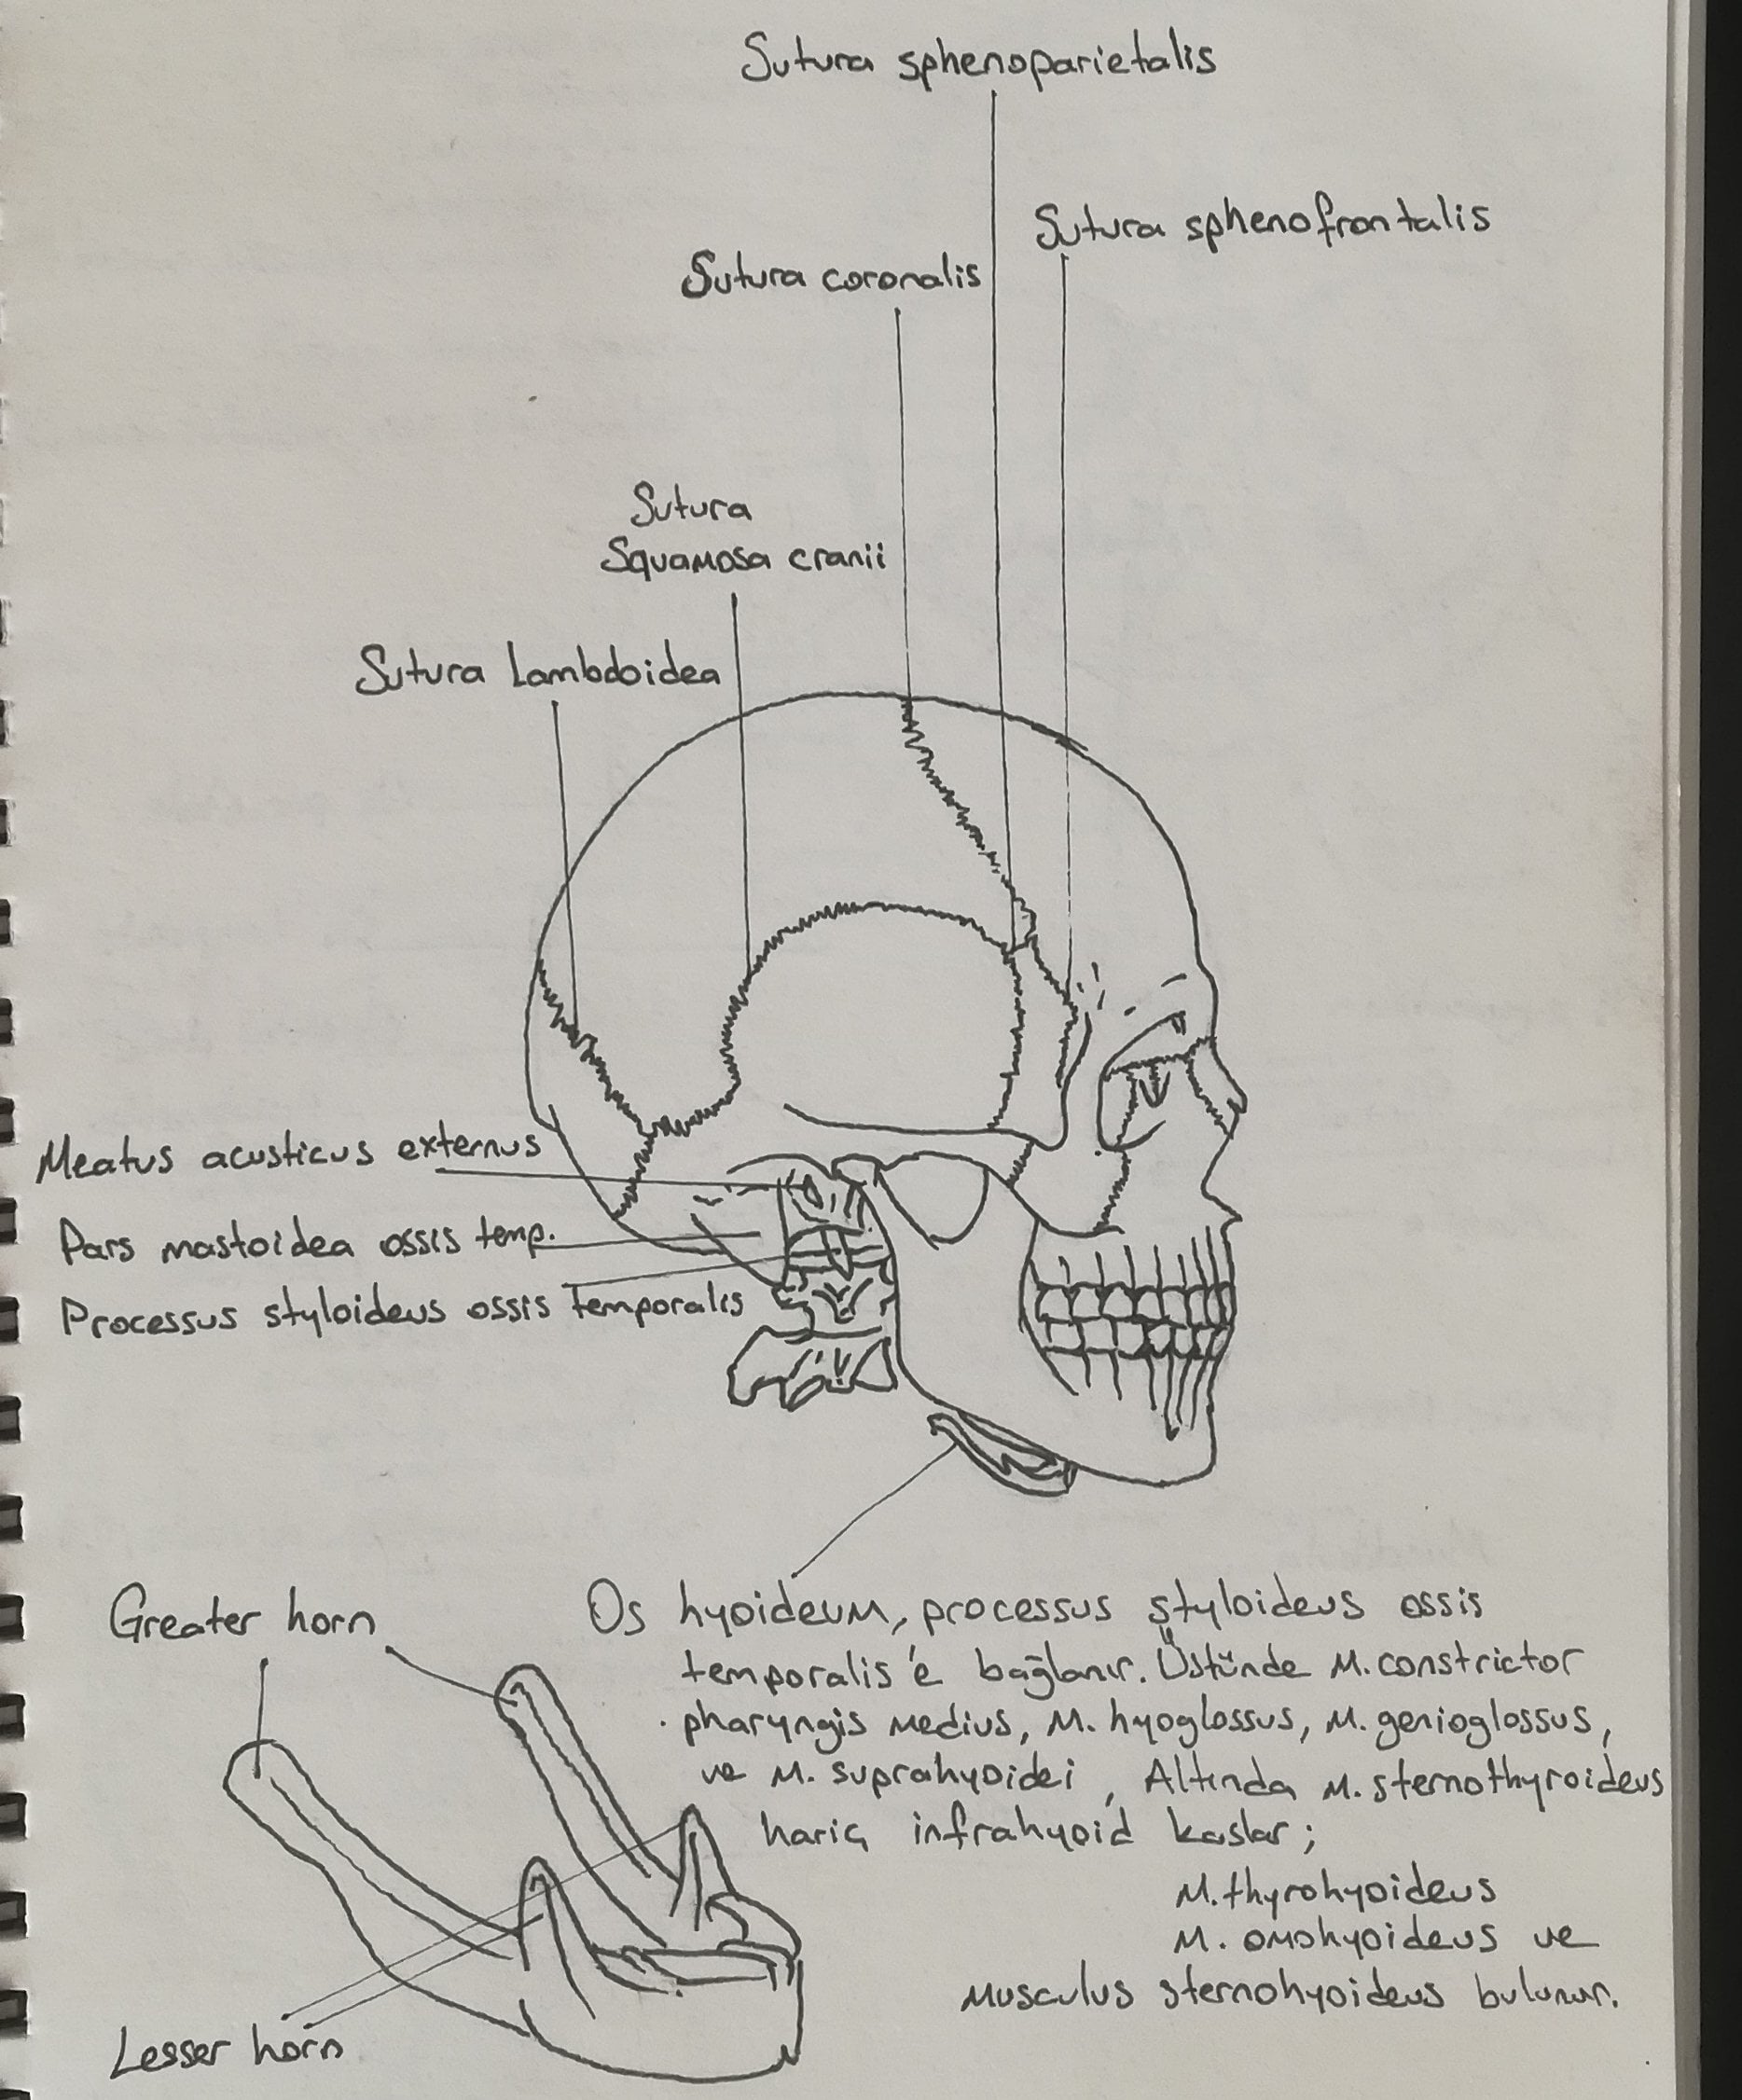 Sutura sphenoparietalis
Sutura sphenofrontalis
Sutura coronalis
Sutura
Squamosa cranii
Sutura Lambdoidea
Meatus acusticus externus
Pars mastoidea ossis temp.
Processus styloideus ossis Temporalis
Greater horn
Os hyoideum, processus styloideus ossis
temporalis'e bağlanır. Üstünde M. constrictor
pharyngis medius, M. hyoglossus, M. genioglossus,
ve M. suprahyoidei, Altında M. sternothyroideus
hariç infrahyoid kaslar;
M. thyrohyoideus
M. omohyoideus ve
Musculus sternohyoideus bulunur.
Lesser horn